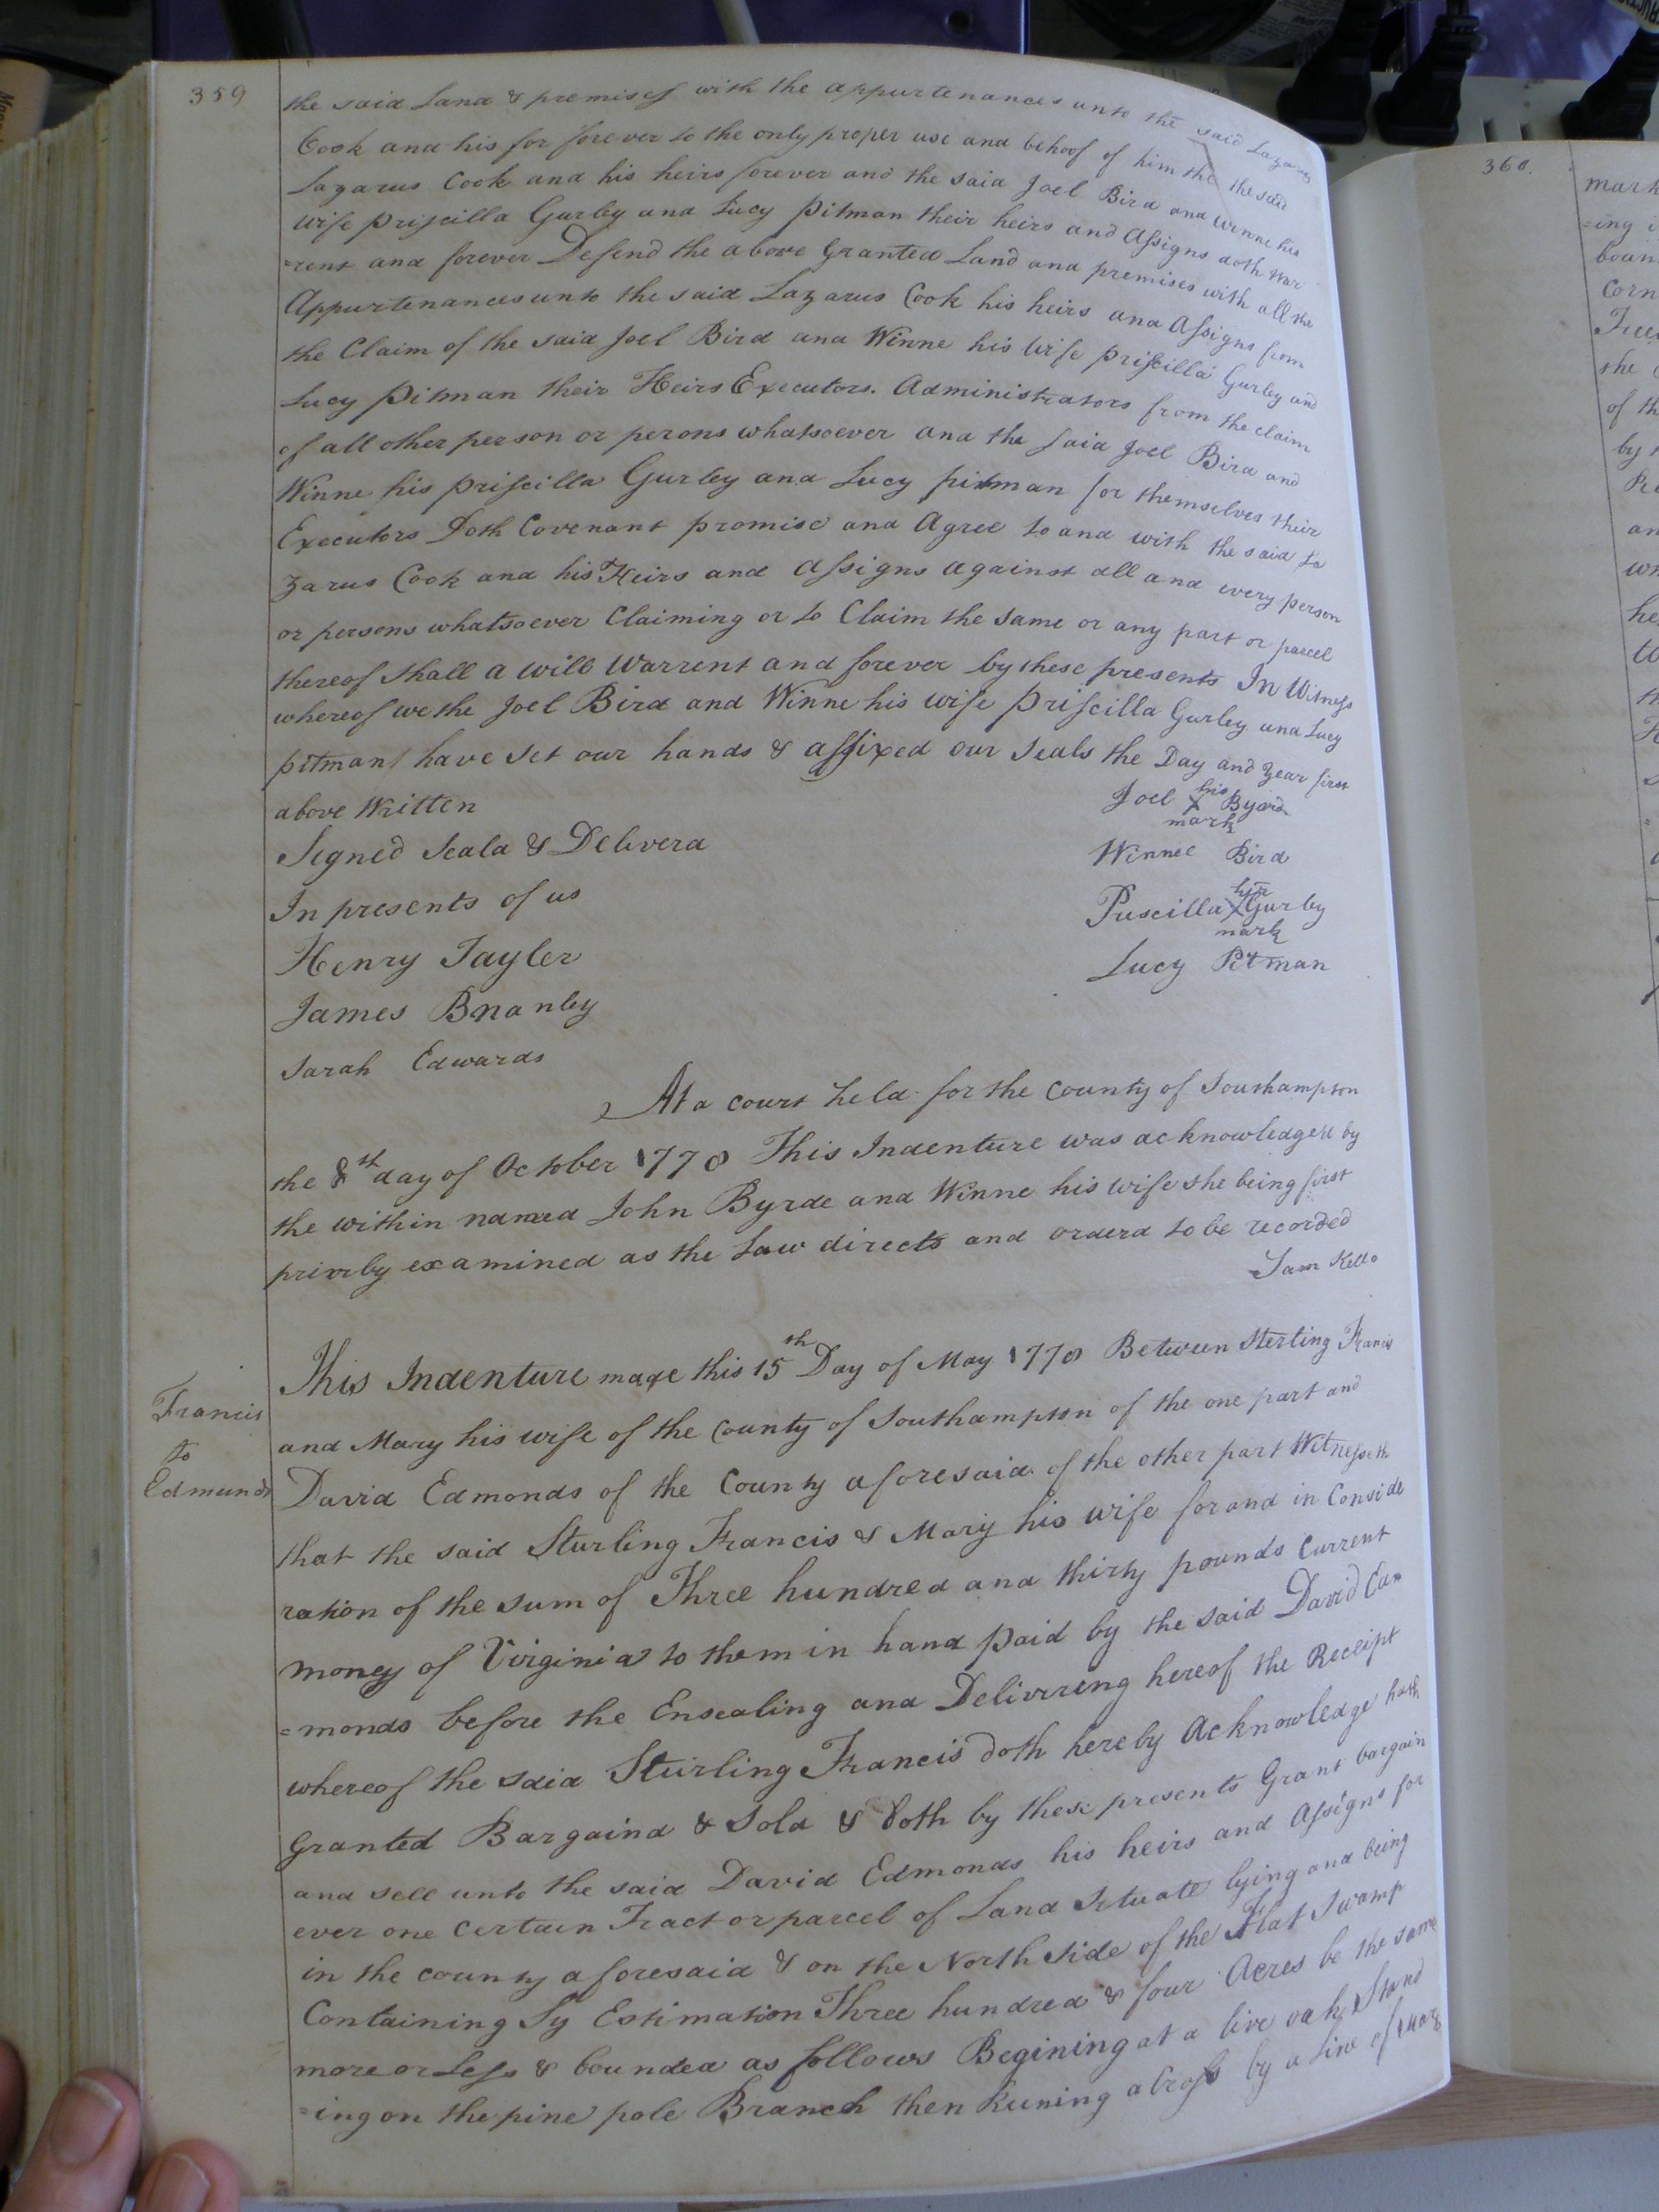 359
the said Land & premises with the appurtenances unto the said Lazarus
Cook and his for forever to the only proper use and behoof of him the the said
Lazarus Cook and his heirs forever and the said Joel Bird and Winne his
wife Priscilla Gurley and Lucy Pitman their heirs and Assigns doth War
=rent and forever Defend the above Granted Land and premises with all the
Appurtenances unto the said Lazarus Cook his heirs and Assigns from
the Claim of the said Joel Bird and Winne his wife Priscilla Gurley and
Lucy Pitman their Heirs Executors. Administrators from the claim
of all other person or perons whatsoever and the said Joel Bird and
Winne his Priscilla Gurley and Lucy pitman for themselves their
Executors Doth Covenant promise and Agree to and with the said La
zarus Cook and his Heirs and Assigns against all and every person
or persons whatsoever Claiming or to Claim the same or any part or parcel
thereof shall a will Warrent and forever by these presents In Witness
whereof we the Joel Bird and Winne his wife Priscilla Gurley and Lucy
pitman have set our hands & affixed our seals the Day and year first
above Written
Joel his X Byrd mark
Signed Seald & Deliverd
Winnee Bird
In presents of us
Puscilla her X Gurley mark
Henry Tayler
Lucy Pitman
James Bnanley
Sarah Edwards
At a court held for the County of Southampton
the 8th day of October 1778 This Indenture was acknowledged by
the within named John Byrde and Winne his wife she being first
privrly examined as the Law directs and orderd to be recorded
Sam Kello
This Indenture made this 15th Day of May 1778 Between Sterling Francis
Francis
to
Edmunds
and Mary his wife of the County of Southampton of the one part and
David Edmonds of the County aforesaid of the other part Witnesseth
that the said Sturling Francis & Mary his wife for and in Conside
ration of the sum of Three hundred and thirty pounds Current
money of Virginia to them in hand paid by the said David
=monds before the Ensealing and Delivering hereof the Receipt
whereof the said Sturling Francis doth hereby Acknowledge hath
Granted Bargaind & Sold & doth by these presents Grant bargain
and sell unto the said David Edmonds his heirs and Assigns for
ever one certain Tract or parcel of Land Situate lying and being
in the county aforesaid & on the North side of the Flat Swamp
Containing By Estimation Three hundred & four Acres be the same
more or Less & bounded as follows Begining at a live oak Stand
=ing on the pine pole Branch then Runing a by a Line of
360.
mark
=ing
boun
Corn
she
of th
by
an
he
to